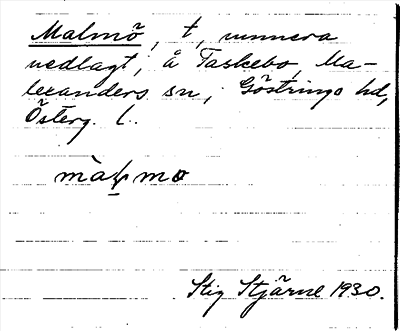 Malmö, t, numera
nedlagt, å Taskebo, Ma-
lexanders sn, Göstrings hd,
Österg. l.
màɫmo
Stig Stjärne 1930.